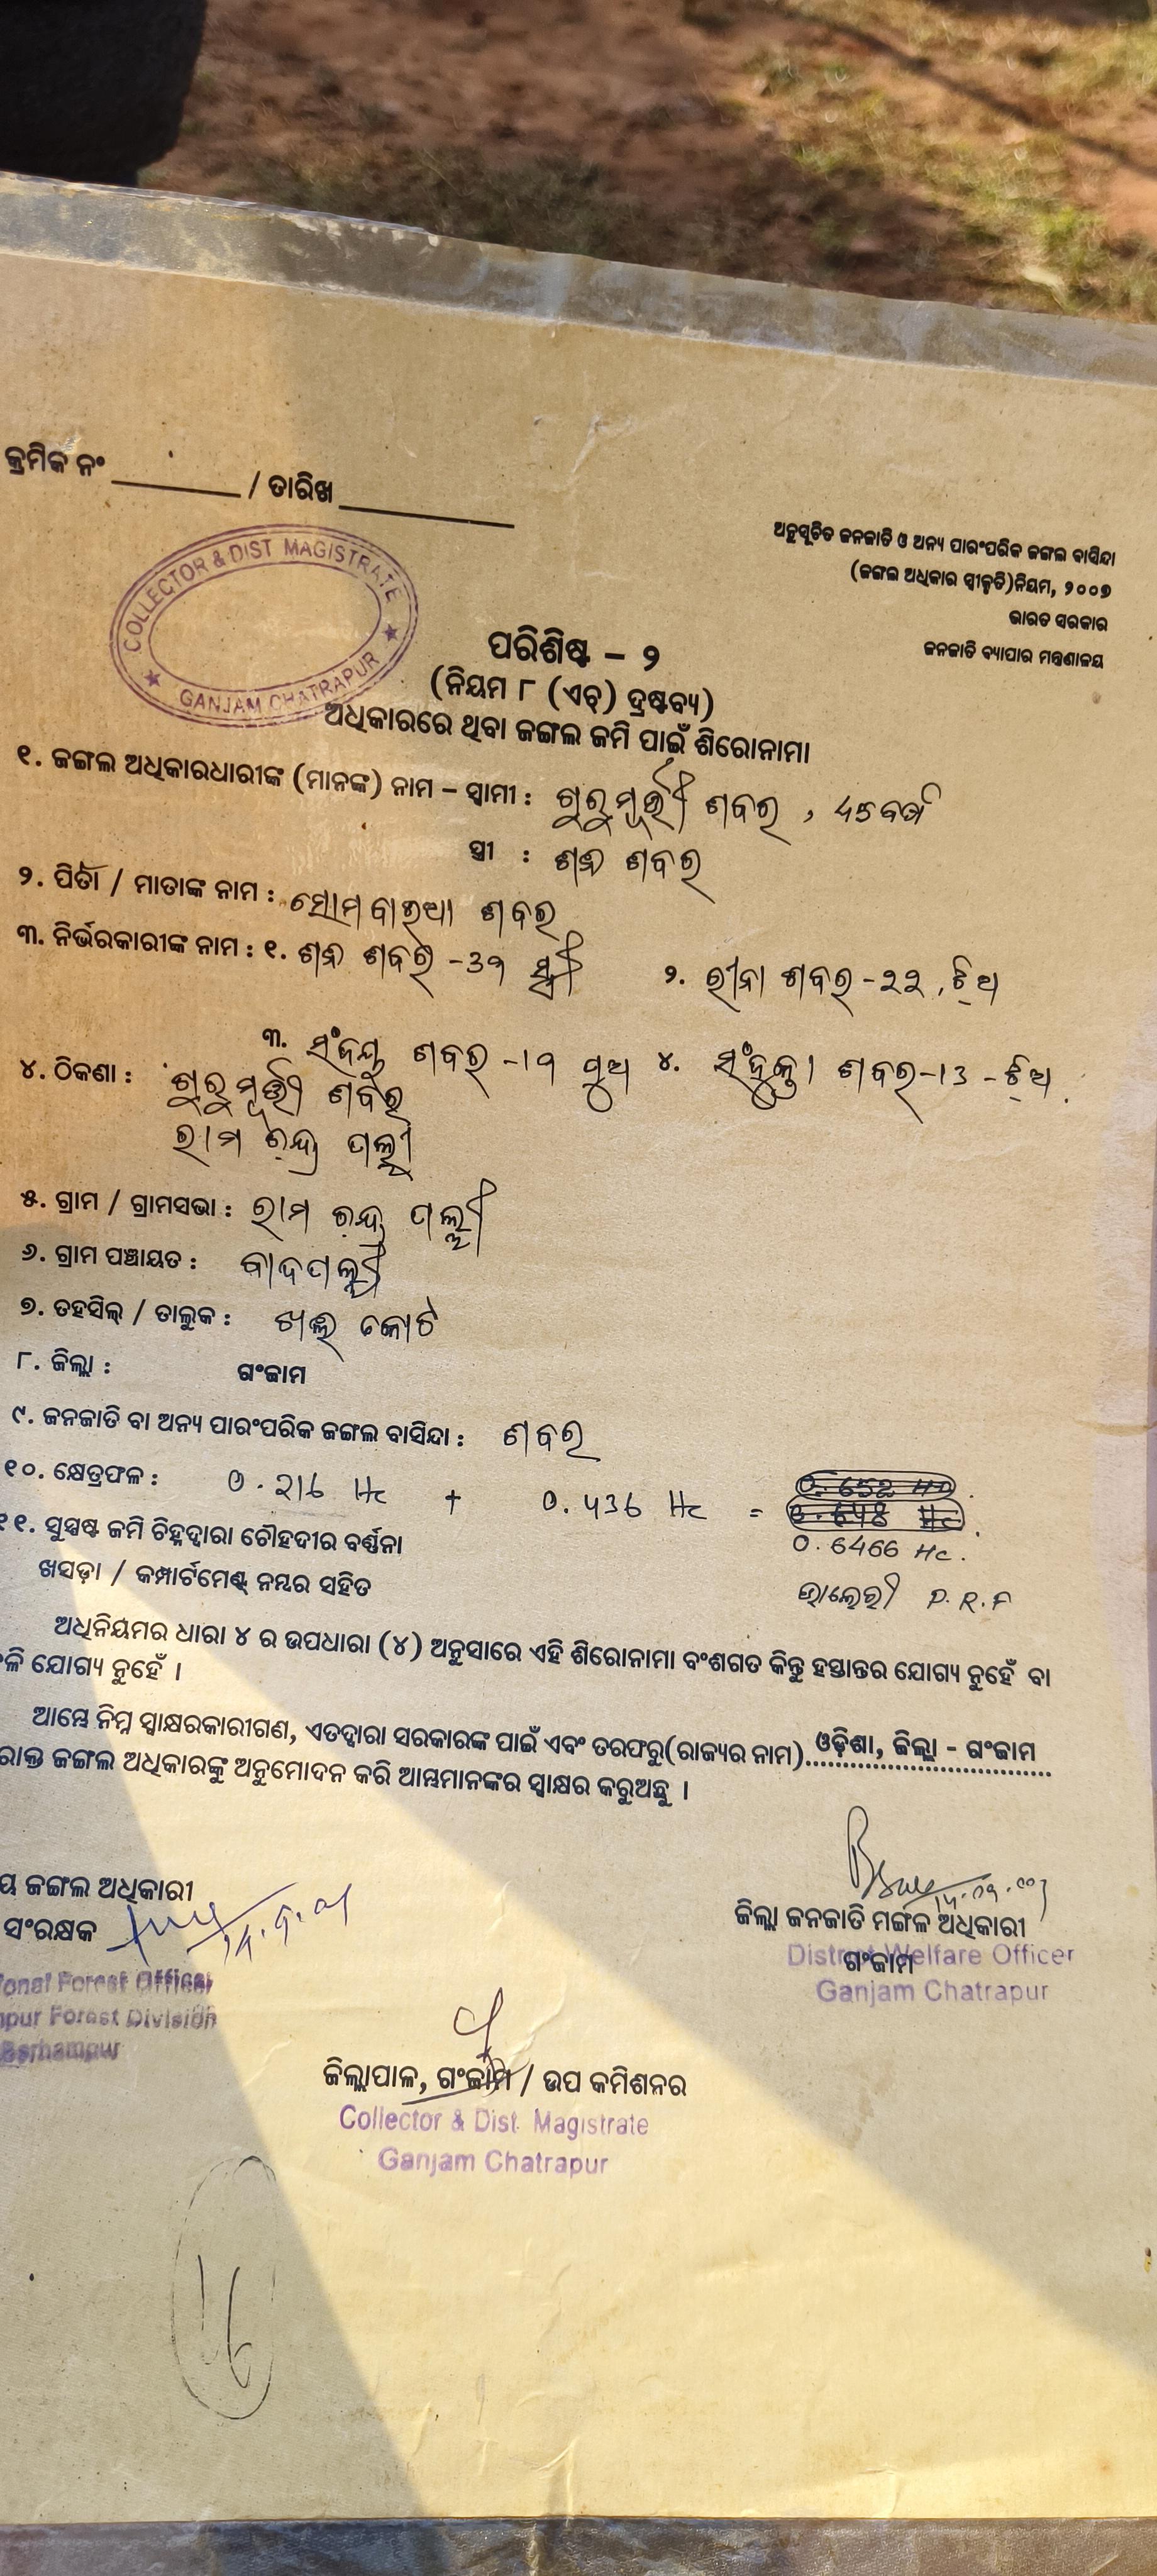 କ୍ରମିକ ନଂ ________ / ତାରିଖ ___________
COLLECTOR & DIST MAGISTRATE
GANJAM CHATRAPUR
ଅନୁସୂଚିତ ଜନଜାତି ଓ ଅନ୍ୟ ପାରଂପରିକ ଜଙ୍ଗଲ ବାସିନ୍ଦା
(ଜଙ୍ଗଲ ଅଧିକାର ସ୍ୱୀକୃତି)ନିୟମ, ୨୦୦୭
ଭାରତ ସରକାର
ଜନଜାତି ବ୍ୟାପାର ମନ୍ତ୍ରଣାଳୟ
ପରିଶିଷ୍ଟ – ୨
(ନିୟମ ୮ (ଏଚ୍) ଦ୍ରଷ୍ଟବ୍ୟ)
ଅଧିକାରରେ ଥିବା ଜଙ୍ଗଲ ଜମି ପାଇଁ ଶିରୋନାମା
୧. ଜଙ୍ଗଲ ଅଧିକାରଧାରୀଙ୍କ (ମାନଙ୍କ) ନାମ – ସ୍ୱାମୀ : ଗୁରୁମୂର୍ତ୍ତୀ ଶବର , 45 ବର୍ଷ
ସ୍ତ୍ରୀ : ଶବର
୨. ପିତା / ମାତାଙ୍କ ନାମ : ସୋମବାରିଆ ଶବର
୩. ନିର୍ଭରକାରୀଙ୍କ ନାମ : ୧. ଶବର - ସ୍ତ୍ରୀ ୨. ରୀନା ଶବର - ୨୨ , ଝିଅ
୩. ସଂଜୟ ଶବର - ପୁଅ ୪. ସଂଜୁକ୍ତା ଶବର - 13 - ଝିଅ
୪. ଠିକଣା : ଗୁରୁମୂର୍ତ୍ତୀ ଶବର
ରାମ ଚନ୍ଦ୍ର ପଲ୍ଲୀ
୫. ଗ୍ରାମ / ଗ୍ରାମସଭା : ରାମ ଚନ୍ଦ୍ର ପଲ୍ଲୀ
୬. ଗ୍ରାମ ପଞ୍ଚାୟତ :
୭. ତହସିଲ୍ / ତାଲୁକ : ଖଲି କୋଟ
୮. ଜିଲ୍ଲା : ଗଂଜାମ
୯. ଜନଜାତି ବା ଅନ୍ୟ ପାରଂପରିକ ଜଙ୍ଗଲ ବାସିନ୍ଦା : ଶବର
୧୦. କ୍ଷେତ୍ରଫଳ : 0.216 Hc + 0.436 Hc =
0.6466 Hc.
୧୧. ସୁସ୍ପଷ୍ଟ ଜମି ଚିହ୍ନଦ୍ୱାରା ଚୌହଦୀର ବର୍ଣ୍ଣନା
ଖସଡ଼ା / କମ୍ପାର୍ଟମେଣ୍ଟ୍ ନମ୍ବର ସହିତ ଭାଲେରୀ P.R.F
ଅଧିନିୟମର ଧାରା ୪ ର ଉପଧାରା (୪) ଅନୁସାରେ ଏହି ଶିରୋନାମା ବଂଶଗତ କିନ୍ତୁ ହସ୍ତାନ୍ତର ଯୋଗ୍ୟ ନୁହେଁ ବା
ଯୋଗ୍ୟ ନୁହେଁ ।
ଆମ୍ଭେ ନିମ୍ନ ସ୍ୱାକ୍ଷରକାରୀଗଣ, ଏତଦ୍ୱାରା ସରକାରଙ୍କ ପାଇଁ ଏବଂ ତରଫରୁ(ରାଜ୍ୟର ନାମ) ଓଡ଼ିଶା, ଜିଲ୍ଲା - ଗଂଜାମ
ଜଙ୍ଗଲ ଅଧିକାରଙ୍କୁ ଅନୁମୋଦନ କରି ଆମ୍ଭମାନଙ୍କର ସ୍ୱାକ୍ଷର କରୁଅଛୁ ।
ଜଙ୍ଗଲ ଅଧିକାରୀ
ସଂରକ୍ଷକ
Forest Officer
Forest Division
Berhampur
ଜିଲ୍ଲା ଜନଜାତି ମଙ୍ଗଳ ଅଧିକାରୀ
ଗଂଜାମ
District Welfare Officer
Ganjam Chatrapur
ଜିଲ୍ଲାପାଳ, ଗଂଜାମ / ଉପ କମିଶନର
Collector & Dist. Magistrate
Ganjam Chatrapur
16